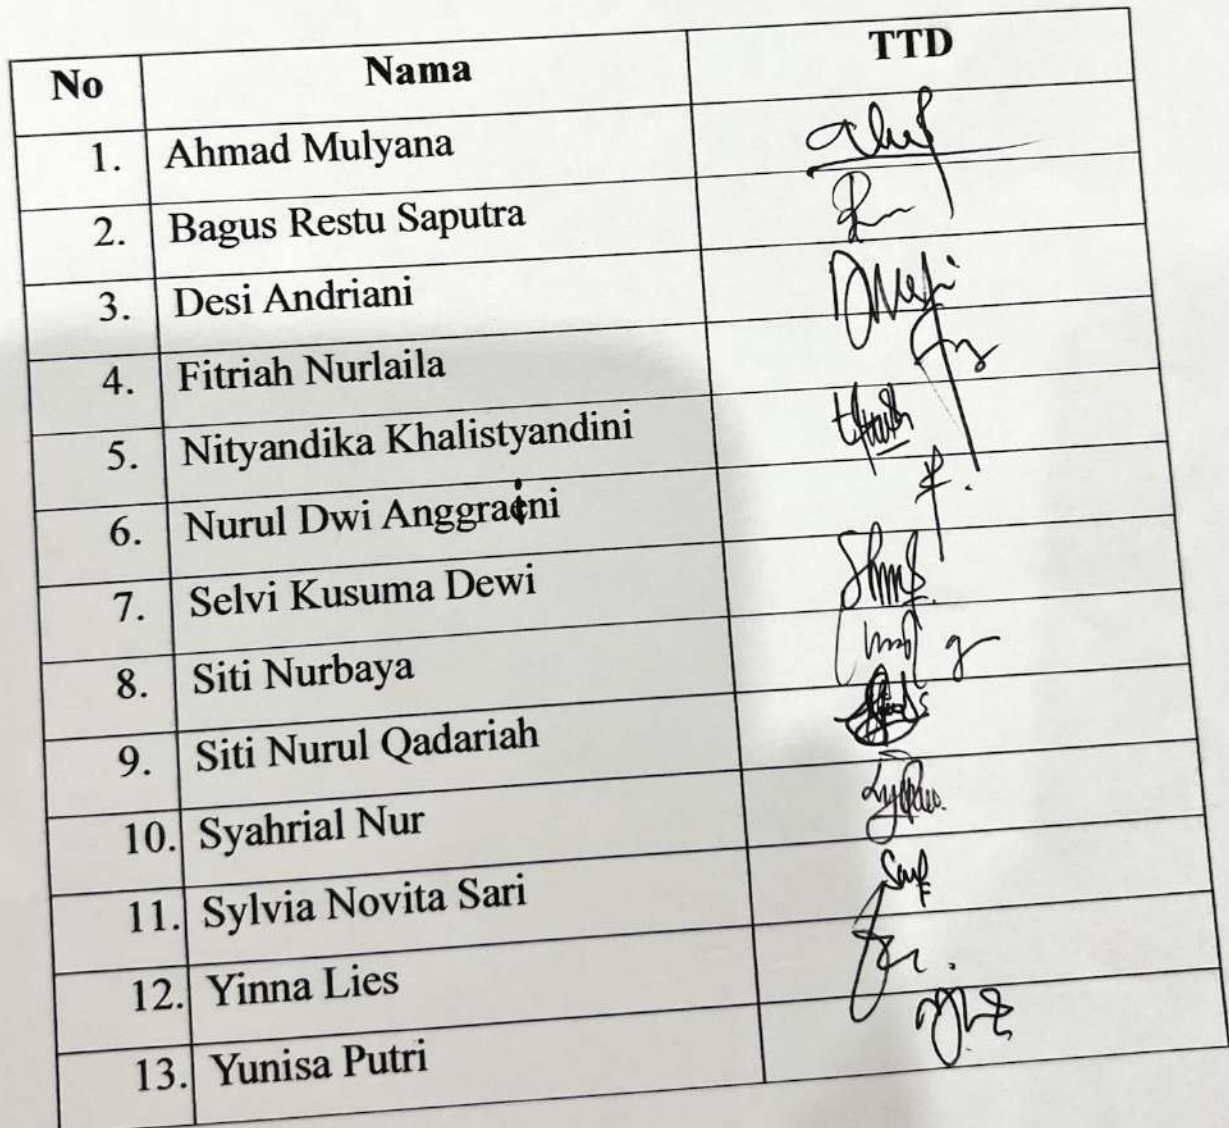 No Nama TTD
1. Ahmad Mulyana
2. Bagus Restu Saputra
3. Desi Andriani
4. Fitriah Nurlaila
5. Nityandika Khalistyandini
6. Nurul Dwi Anggraini
7. Selvi Kusuma Dewi
8. Siti Nurbaya
9. Siti Nurul Qadariah
10. Syahrial Nur
11. Sylvia Novita Sari
12. Yinna Lies
13. Yunisa Putri